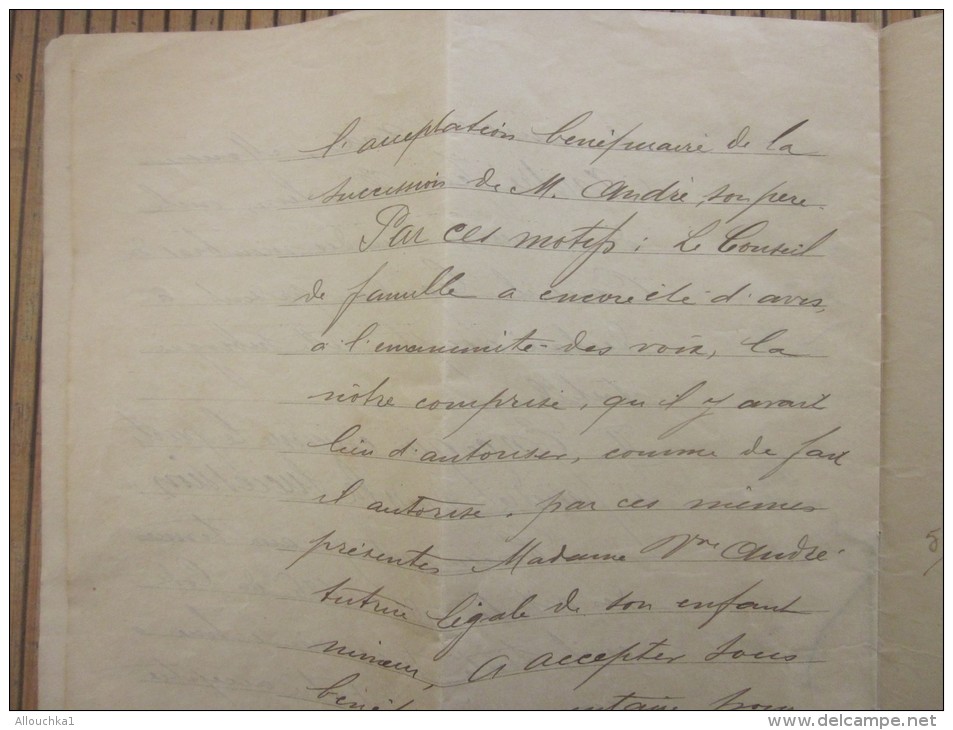 l'acceptation bénéficiaire de la
succession de M. André, son père.
Par ces motifs : Le Conseil
de famille a encore été d'avis,
à l'unanimité des voix, la
nôtre comprise, qu'il y avait
lieu d'autoriser, comme de fait
il autorise, par ces mêmes
présentes Madame Vve André
tutrice légale de son enfant
mineur, à accepter sous
5
Allouchka1
www.delcampe.net